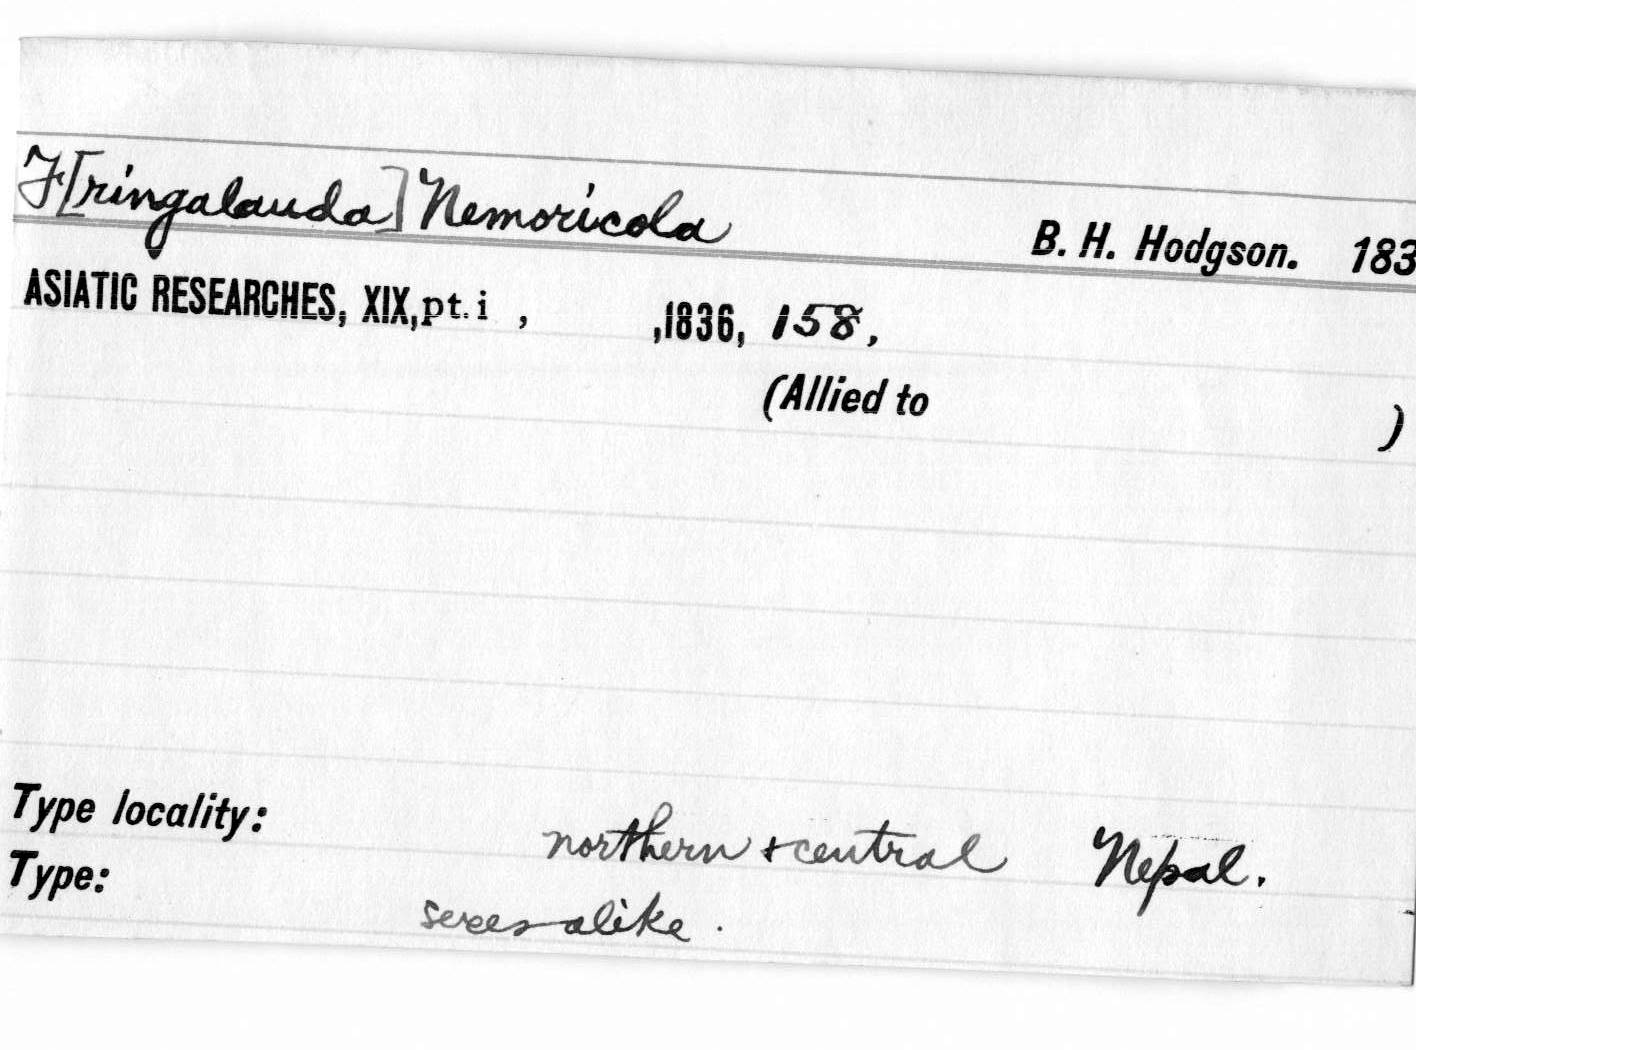 F[ringalauda] Nemoricola B. H. Hodgson. 183
ASIATIC RESEARCHES, XIX, pt. i , ,1836, 158,
(Allied to )
Type locality: northern + central Nepal.
Type: sexes alike.